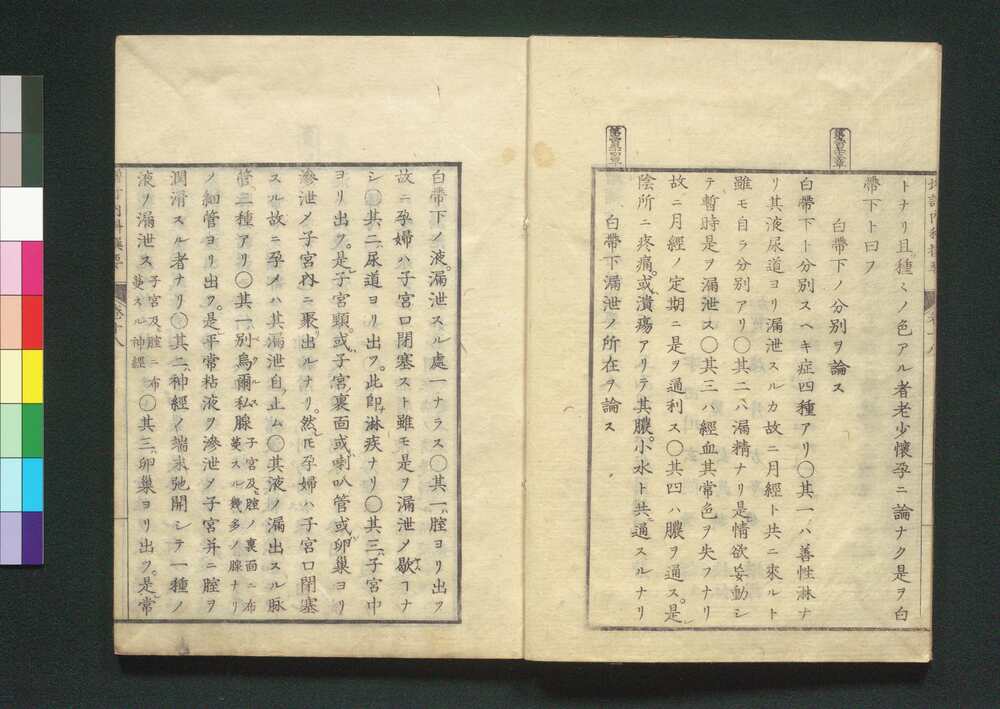 トナリ且種々ノ色アル者老少懷孕ニ論ナク是ヲ白
帶下ト曰フ
白帶下ノ分別ヲ論ス
白帶下ト分別スヘキ症四種アリ〇其一ハ善性淋ナ
リ其液尿道ヨリ漏泄スルカ故ニ月經ト共ニ來ルト
雖モ自ラ分別アリ〇其二ハ漏精ナリ是情欲妄動シ
テ暫時是ヲ漏泄ス〇其三ハ經血其常色ヲ失フナリ
故ニ月經ノ定期ニ是ヲ通利ス〇其四ハ膿ヲ通ス。是レ
陰所ニ疼痛。或潰瘍アリテ其膿。小水ト共ニ通スルナリ
白帶下漏泄ノ所在ヲ論ス
白帶下ノ液。漏泄スル處一ナラス〇其一、腟ヨリ出ツ
故ニ孕婦ハ子宮口閉塞スト雖モ是ヲ漏泄ノ歇ヿナ
シ〇其二、尿道ヨリ出ツ。此即淋疾ナリ〇其三、子宮中
ヨリ出ツ。是レ子宮頸。或子宮裏面或喇叭管或卵巢ヨリ
滲泄メ子宮內ニ聚リ出ルナリ。然𪜈孕婦ハ子宮口閉塞
スル故ニ孕メハ其漏泄自ラ止ム〇其液ノ漏出スル脈
管二種アリ〇其一別烏爾私腺子宮及腟ノ裏面ニ布蔓スル幾多ノ腺ナリ
ノ細管ヨリ出ツ。是平常粘液ヲ滲泄メ子宮并ニ腟ヲ
潤滑スル者ナリ〇其二、神經ノ端末弛開シテ一種ノ
液ヲ漏泄ス子宮及腟ニ布蔓スル神經〇其三、卵巢ヨリ出ツ。是常